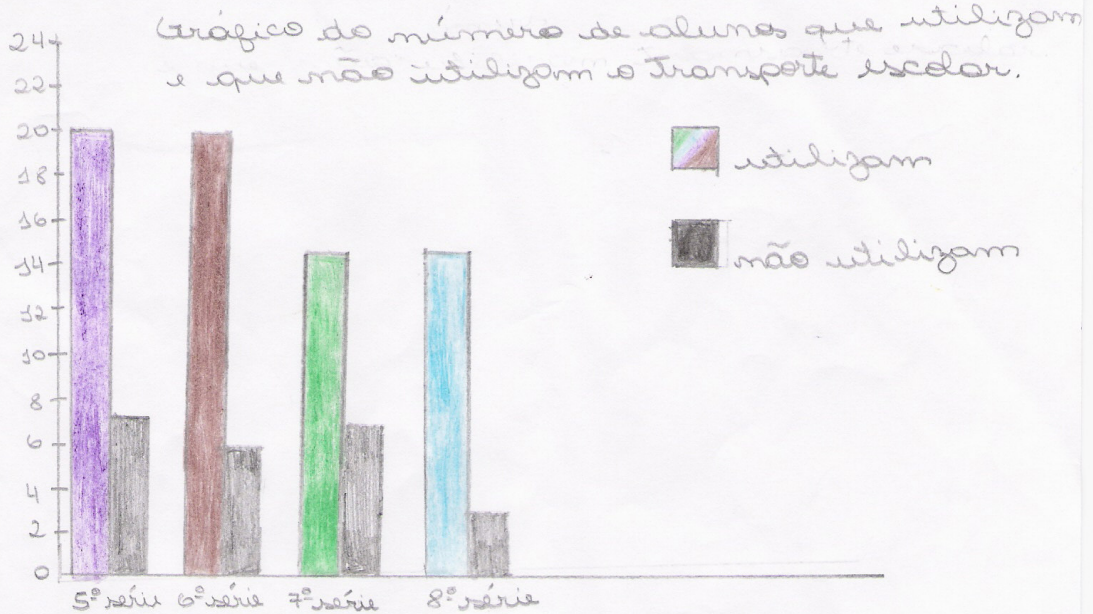 Gráfico do número de alunos que utilizam
e que não utilizam o transporte escolar.
24
22
20
18
16
14
12
10
8
6
4
2
0
utilizam
não utilizam
5ª série 6ª série 7ª série 8ª série